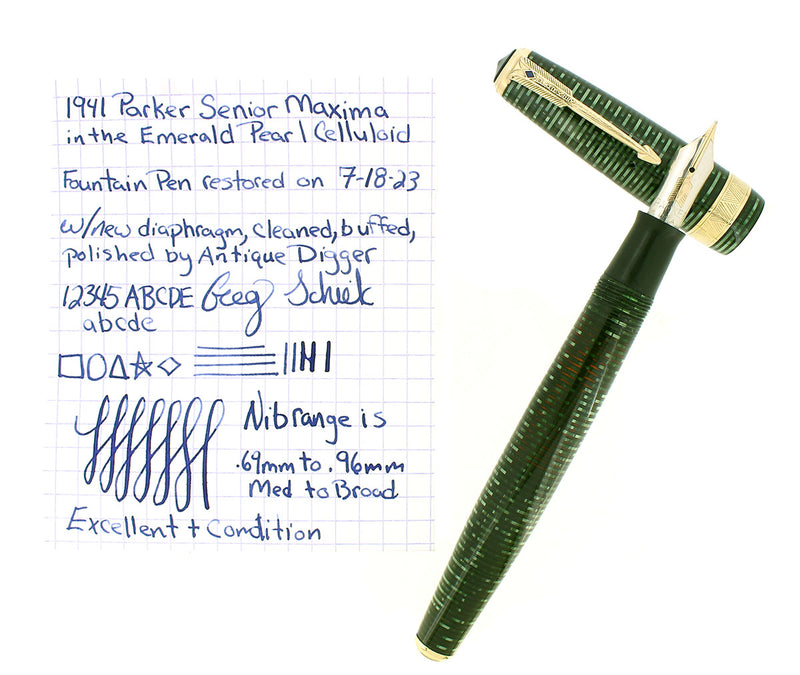 1941 Parker Senior Maxima
in the Emerald Pearl Celluloid
Fountain Pen restored on 7-18-23
w/new diaphragm, cleaned, buffed,
polished by Antique Digger
12345 ABCDE Greg
abcde
Nib range is
.69mm to .96mm
Med to Broad
Excellent + Condition